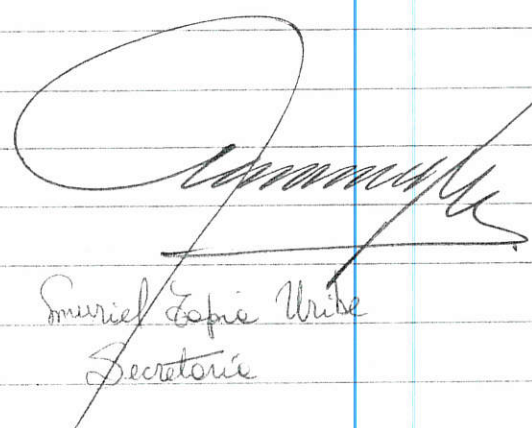 Muriel Tapia Uribe
Secretaria